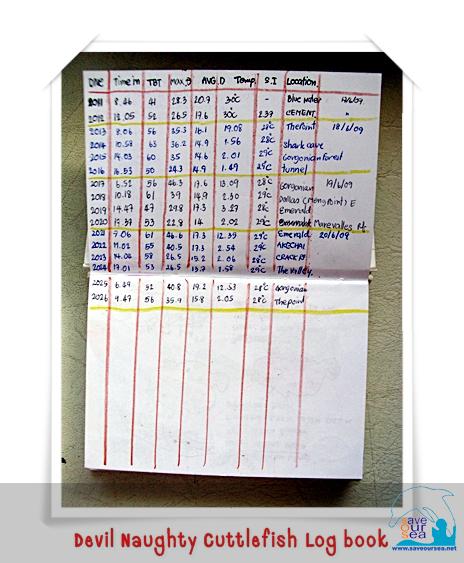 DIVE Time in TBT Max D AVG.D Temp. S.I Location
2011 8.46 41 28.3 20.7 30c - Blue water 17/6/09
2012 13.05 52 26.5 17.6 30c 2.37 CEMENT. "
2013 8.06 56 35.3 16.1 19.08 28c The Point 18/6/09
2014 10.58 63 36.2 14.9 1.56 28c Shark cave
2015 14.03 60 35 14.6 2.01 29c Gorgonian forest
2016 16.53 50 24.3 14.9 1.49 29c tunnel
2017 6.52 56 46.3 17.6 13.09 28c Gorgonian 19/6/09
2018 10.18 61 39 14.9 2.30 29c Dallas (Mengpoint) E
2019 14.47 49 29.8 17.3 3.27 28c Emerald
2020 17.39 53 22.8 14 2.02 29c
2021 7.06 61 46.6 17.3 12.35 29c Emerald 20/6/09
2022 11.01 55 40.5 17.3 2.54 29c
2023 14.02 58 26.5 15.2 2.06 28c
2024 17.01 53 24.5 13.7 1.58 29c The Valley.
2025 6.49 52 40.8 19.2 12.53 28c Gorgonian
2026 9.47 56 35.9 15.8 2.05 28c The point
Devil Naughty Cuttlefish Log book
Save
Our
Sea
www.saveoursea.net